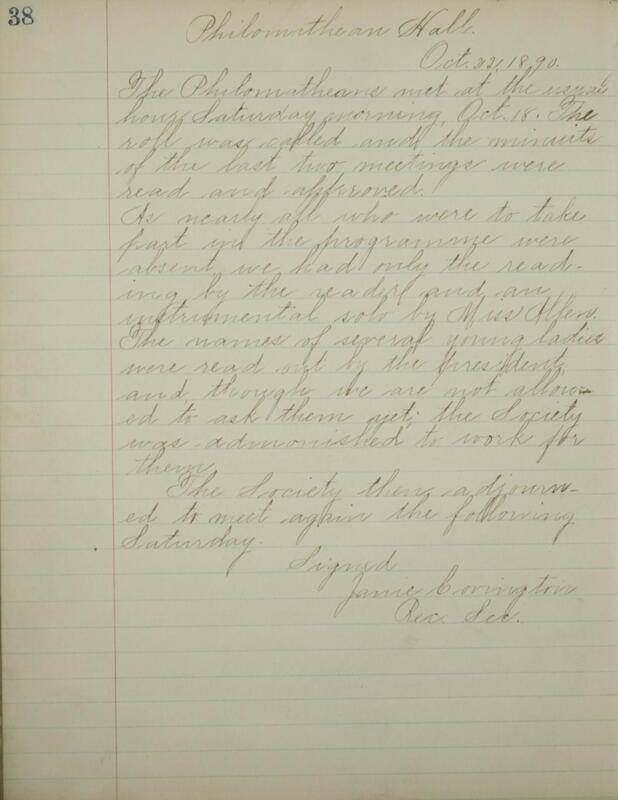 38
Philomathean Hall.
Oct. 22, 1890.
The Philomatheans met at the usual
hour Saturday morning, Oct. 18. The
roll was called and the minuits
of the last two meetings were
read and approved.
As nearly all who were to take
part in the programme were
absent, we had only the read-
ing by the reader and an
instrumental solo by Miss Allen.
The names of several young ladies
were read out by the president,
and, though we are not allow-
ed to ask them yet, the Society
was admonished to work for
them.
The Society then adjourn-
ed to meet again the following
Saturday.
Signed
Janie Covington
Rec. Sec.